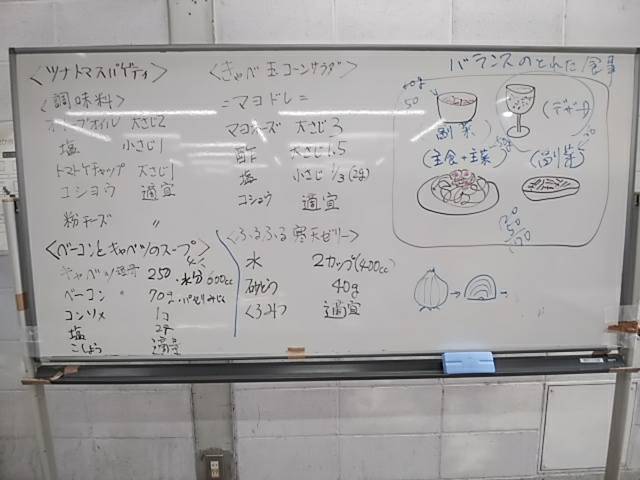 <ツナトマスパゲティ>
<調味料>
オリーブオイル 大さじ2
塩 小さじ1
トマトケチャップ 大さじ1
コショウ 適宜
粉チーズ 〃
<ベーコンとキャベツのスープ>
キャベツ 250 ・水分 600cc
ベーコン 〃 70g ・パセリみじん
コンソメ 1コ
塩
こしょう 適量
<きゃべ玉コーンサラダ>
=マヨドレ=
マヨネーズ 大さじ3
酢 大さじ1.5
塩 小さじ1/3(2g)
コショウ 適宜
<ふるふる寒天ゼリー>
水 2カップ(400cc)
砂とう 40g
くろみつ 適宜
バランスのとれた食事
50
(副菜)
(デザート)
(主食+主菜)
(副菜)